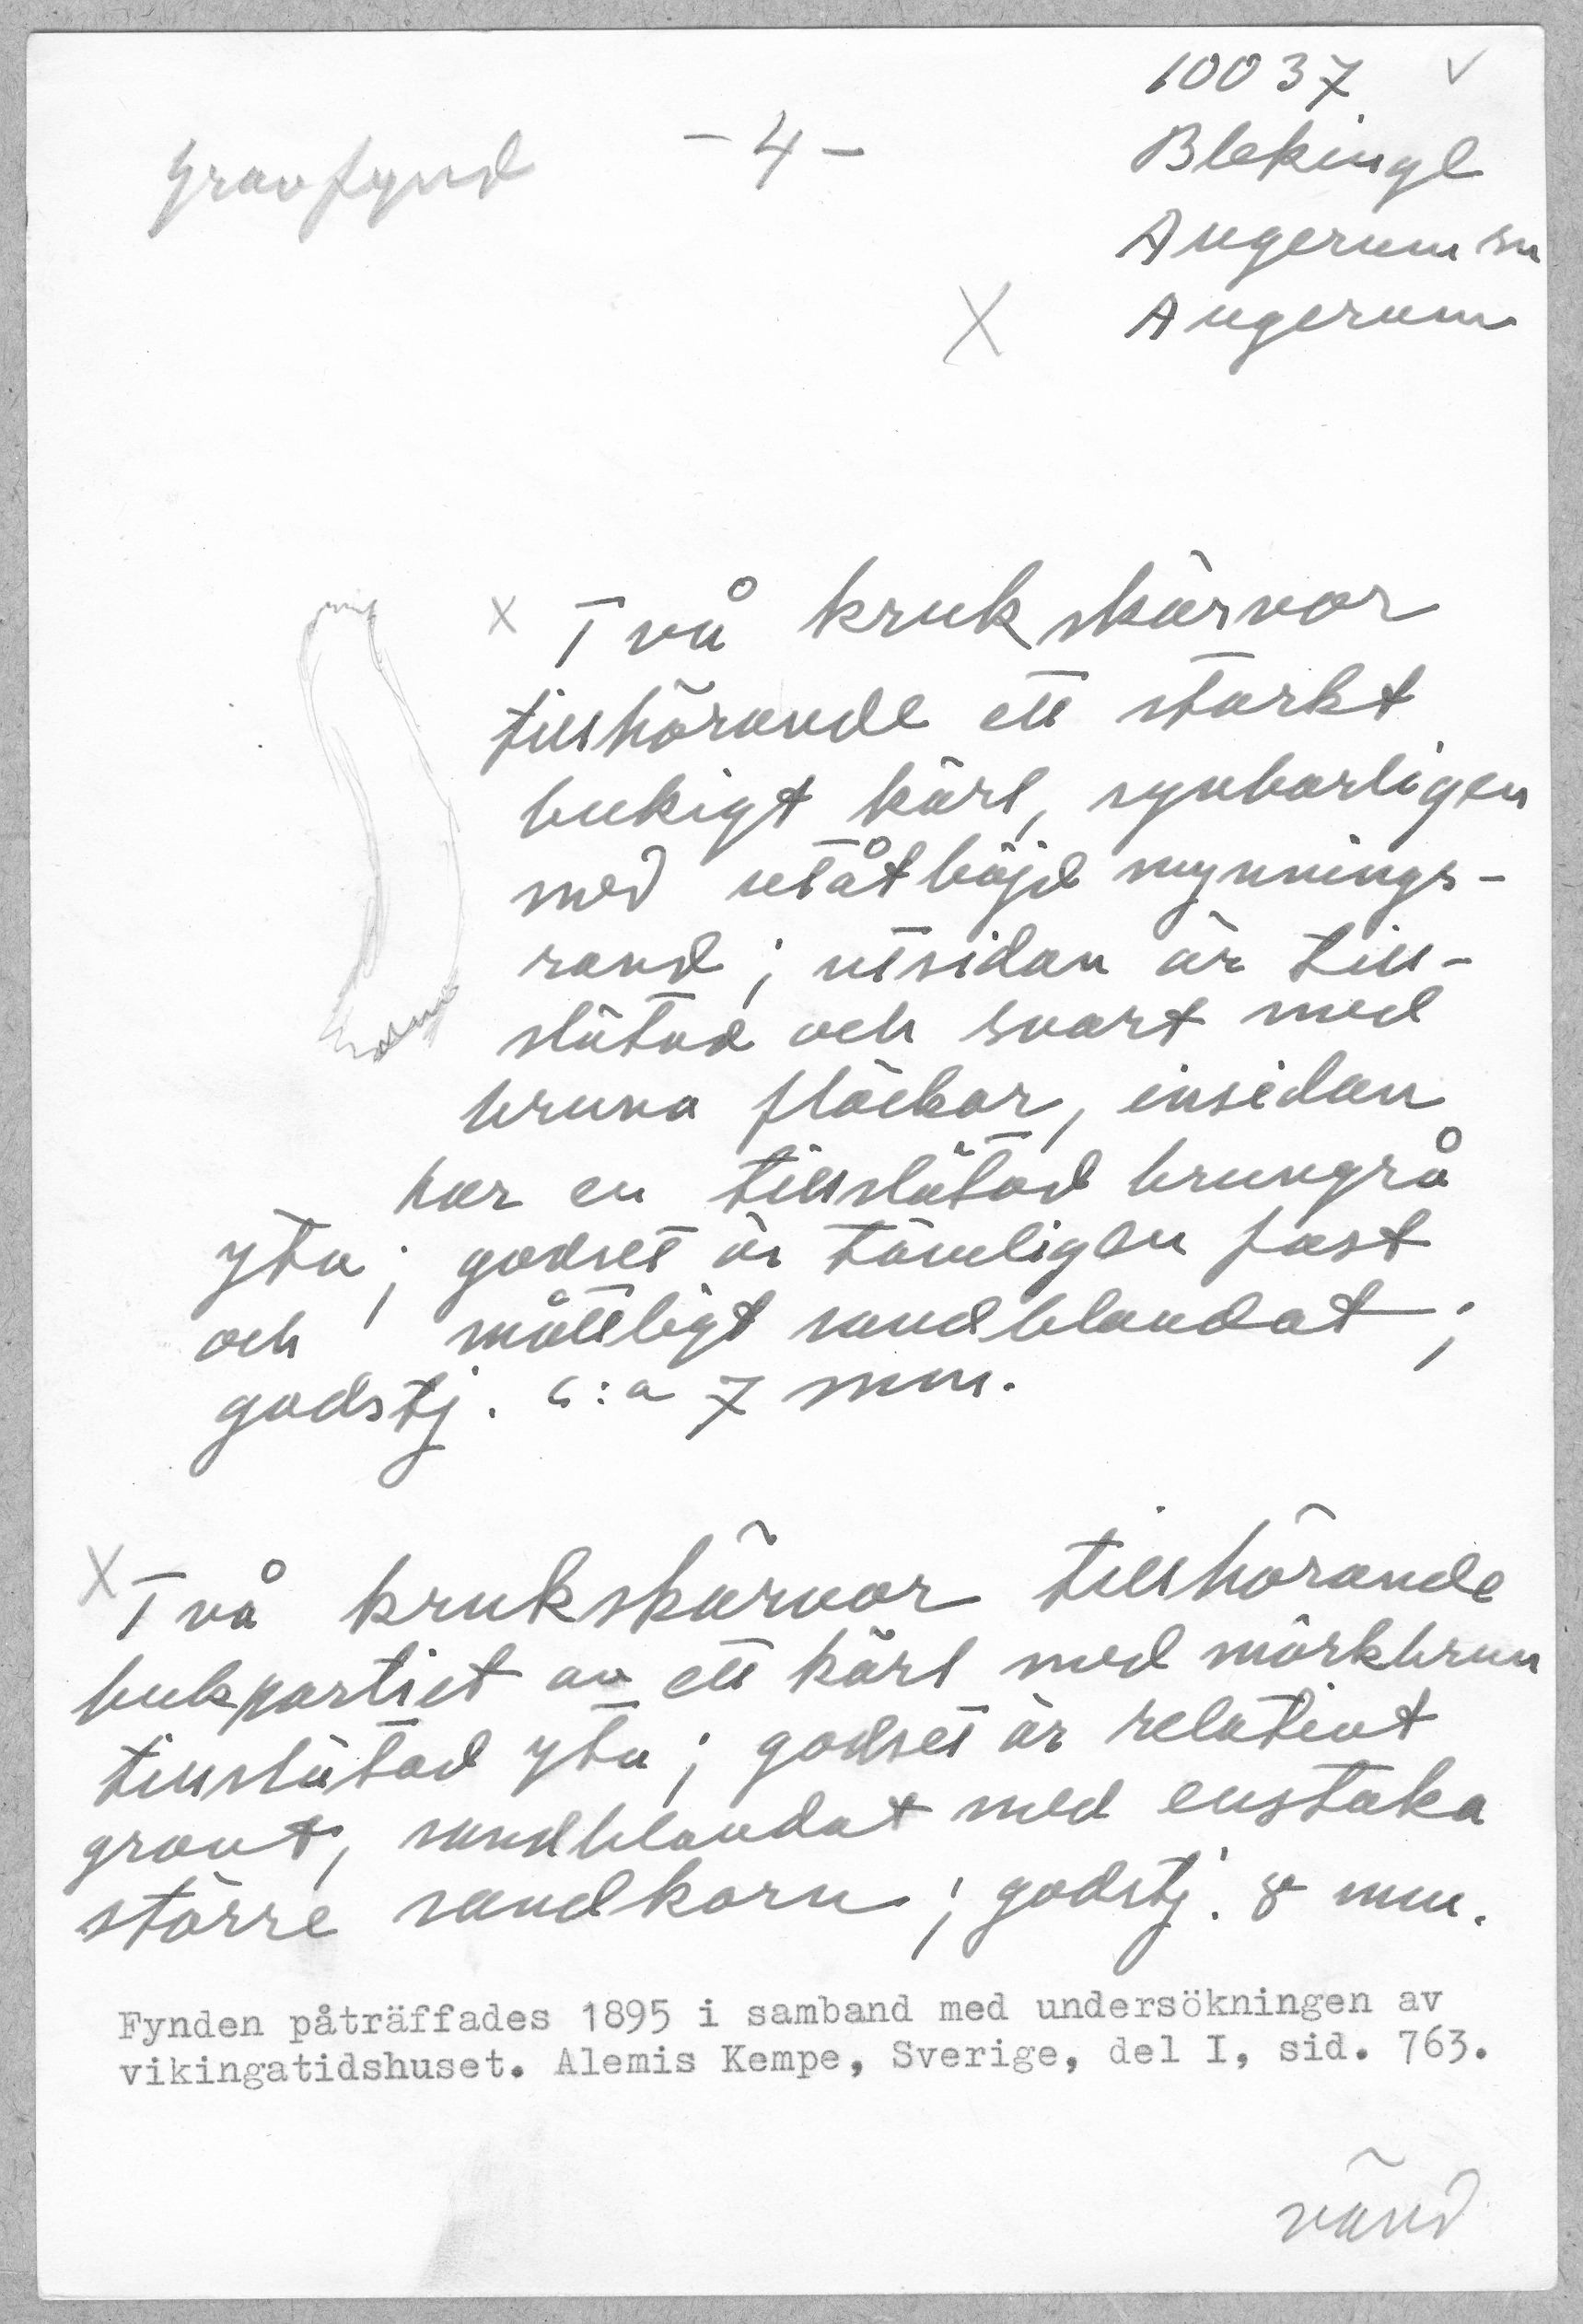 10037 v
Gravfynd - 4 - Blekinge
Augerum sn
X Augerum
x Två krukskärvor
tillhörande ett starkt
bukigt kärl, synbarligen
med utåtböjd mynnings-
rand; utsidan är till-
slätad och svart med
bruna fläckar, insidan
har en tillslätad brungrå
yta; godset är tämligen fast
och måttligt sandblandat;
godstj. c:a 7 mm.
X Två krukskärvor tillhörande
bukpartiet av ett kärl med mörkbrun
tillslätad yta; godset är relativt
grovt, sandblandat med enstaka
större sandkorn; godstj. 8 mm.
Fynden påträffades 1895 i samband med undersökningen av
vikingatidshuset. Alemis Kempe, Sverige, del I, sid. 763.
vänd